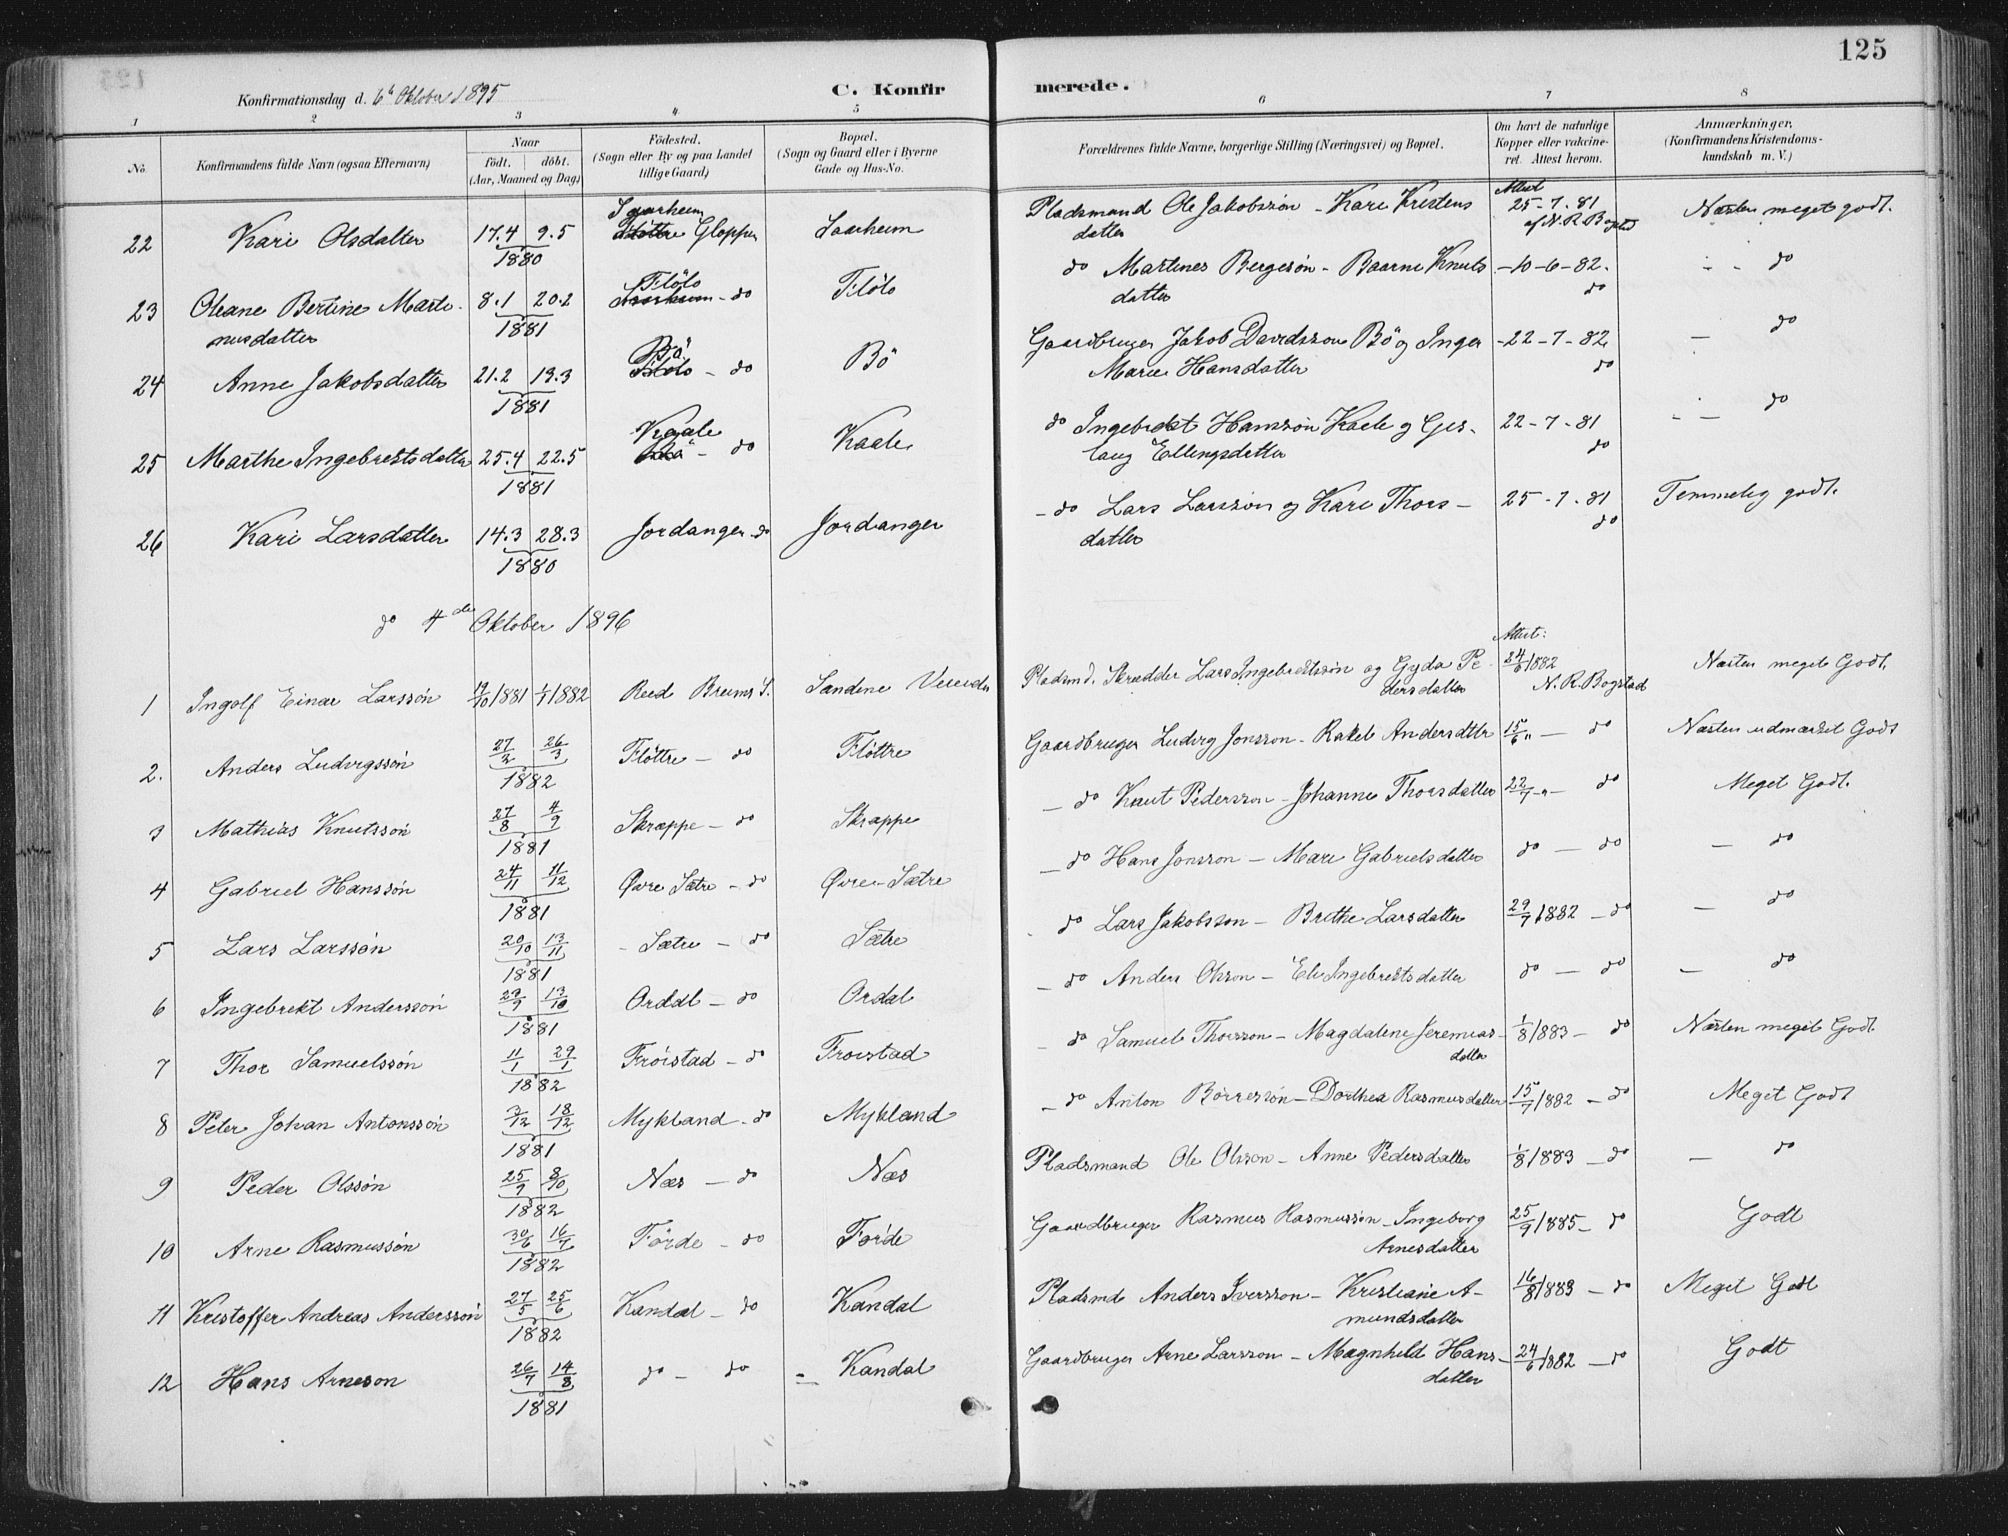 125
Konfirmationsdag d. 6te Oktober 1895
C. Konfirmerede.
1 2 3 4 5 6 7 8
No.
Konfirmandens fulde Navn (ogsaa Efternavn)
Naar
födt. döbt.
(Aar, Maaned og Dag)
Födested.
(Sogn eller By og paa Landet
tillige Gaard)
Bopæl.
(Sogn og Gaard eller i Byerne
Gade og Hus-No.
Forældrenes fulde Navne, borgerlige Stilling (Næringsvei) og Bopæl.
Om havt de naturlige
Kopper eller vakcine-
ret. Attest herom.
Anmærkninger.
(Konfirmandens Kristendoms-
kundskab m. V.)
22 Kari Olsdatter 17.4 9.5 1880 Saarheim Gloppen Saarheim Pladsmand Ole Jakobssön - Kari Kristens
datter Attest 25-7-81 af N. R. Bogstad Næsten meget godt.
23 Oleane Bertine Marti-
nusdatter 8.1 20.2 1881 Flölo - do Flölo do Martines Bergesön - Baarne Knuts
datter -10-6-82. do - - do
24 Anne Jakobsdatter 21.2 13.3 1881 Bö - do Bö Gaardbruger Jakob Davidsson Bö og Inger
Marie Hansdatter -22-7-82. do - do
25 Marthe Ingebrektsdatter 25.4 22.5 1881 Kaale - do Kaale do Ingebrekt Hanssön Kaale og Ges-
laug Ellingsdatter 22-7-81 do - - do
26 Kari Larsdatter 14.3 28.3 1880 Jordanger - do Jordanger - do Lars Larssön og Kari Thors-
datter 25-7-81 do Temmelig godt.
do 4de Oktober 1896
1 Ingolf Einar Larssön /1881 /1882 Reed Breims S. Sandene Pladsmd. Skrædder Lars Ingebrektssön og Gyda Pe-
dersdatter Attest: 24/6 1882 N. R. Bogstad Næsten meget Godt.
2. Anders Ludvigssön 27/2 26/3 1882 Flöttre - do Flöttre Gaardbruger Ludvig Jonsson - Rakel Andersdttr 15/6 " - do Næsten udmærket Godt
3 Mathias Knutssön 27/8 4/9 1881 Skrappe - do Skrappe - do Knut Pedersson - Johanne Thorsdatter 22/7 " - do Meget Godt.
4 Gabriel Hanssön 24/11 11/12 1881 Øvre Sætre - do Øvre-Sætre - do Hans Jonsson - Mari Gabrielsdatter do - do - do
5 Lars Larssön 20/10 13/11 1881 - Sætre - do Sætre - do Lars Jakobsson - Brithe Larsdatter 29/7 1882 - do - do
6 Ingebrekt Anderssön 29/9 13/10 1881 Ordal - do Ordal - do Anders Olsson - Eli Ingebrektsdatter do - do - do
7 Thor Samuelssön 11/1 29/1 1882 Fröistad - do Froistad - do Samuel Thorsson - Magdalene Jeremias-
datter 1/8 1883 - do Næsten meget Godt
8 Peter Johan Antonssön 2/12 18/12 1881 Mykland - do Mykland - do Anton Börresön - Dorthea Rasmusdatter 15/7 1882 - do Meget Godt
9 Peder Olssön 25/9 8/10 1882 Næs - do Næs Pladsmand Ole Olsson - Anne Pedersdatter 1/8 1883 - do - do
10 Arne Rasmussön 30/6 16/7 1882 Förde - do Förde Gaardbruger Rasmus Rasmussön - Ingeborg
Arnesdatter 25/9 1885 - do Godt
11 Kristoffer Andreas Anderssön 27/5 25/6 1882 Kandal - do Kandal Pladsmd Anders Iversson - Kristiane A-
mundsdatter 16/8 1883 - do Meget Godt
12 Hans Arneson 26/7 14/8 1881 do - do - Kandal Gaardbruger Arne Larsson - Magnhild Hans-
datter 24/6 1882 - do Godt